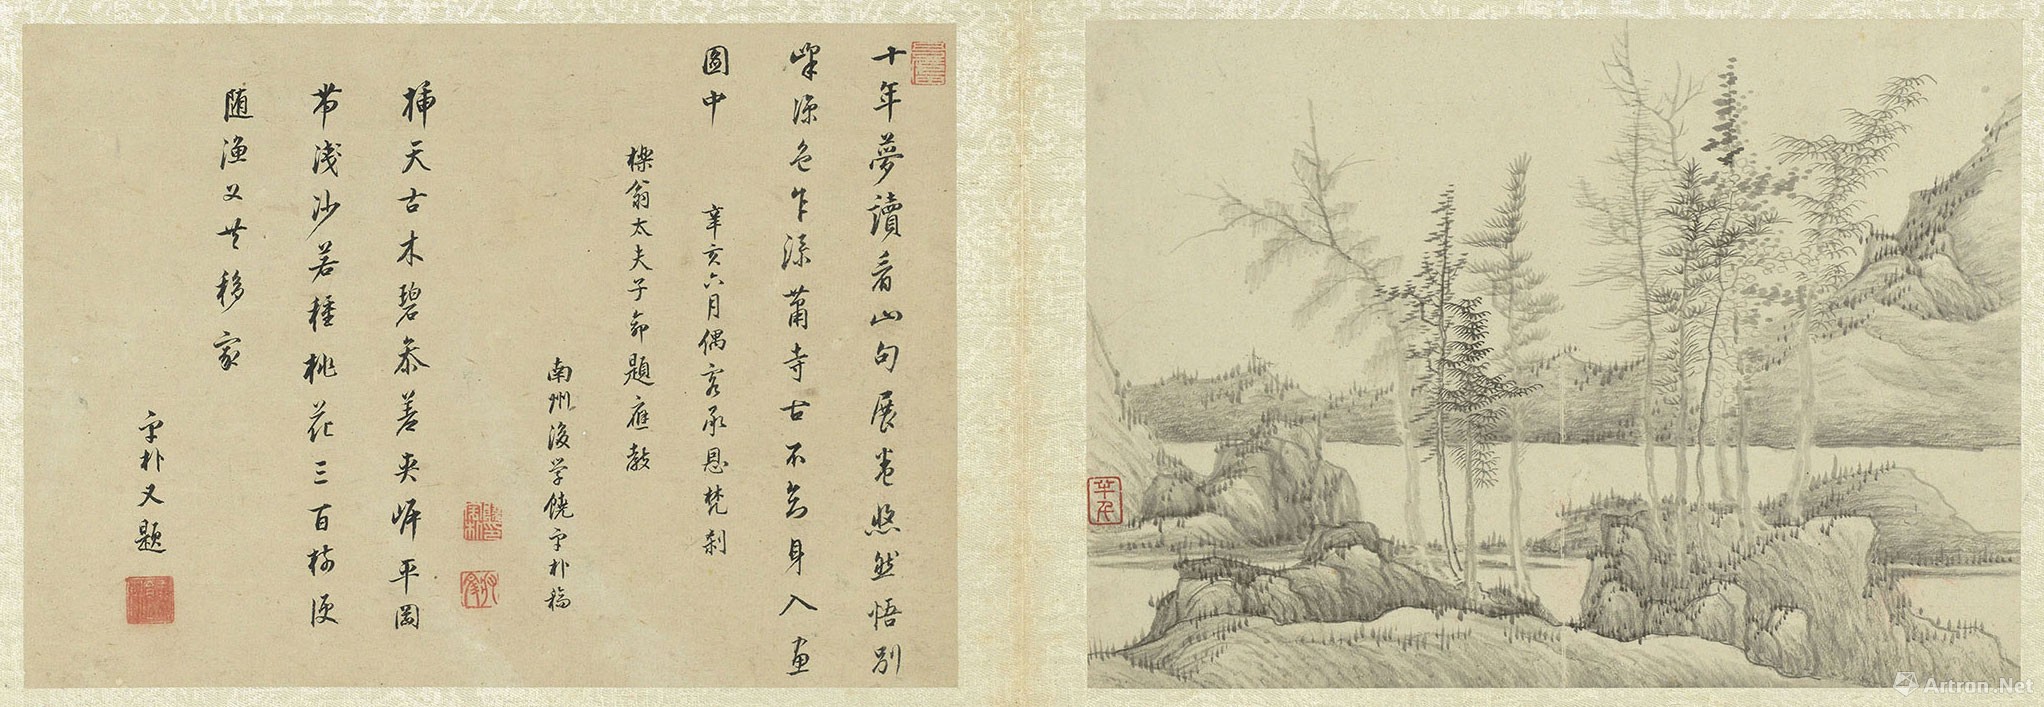 十年夢讀看山句展卷悠然悟別
峰涼色乍添蕭寺古不知身入畫
圖中　辛亥六月偶客承恩梵剎
櫟翁太夫子命題應教
南州後学饒宇朴稿
插天古木碧參差夾岸平岡
帶淺沙若種桃花三百樹便
随漁父共移家
宇朴又題
Artron.Net